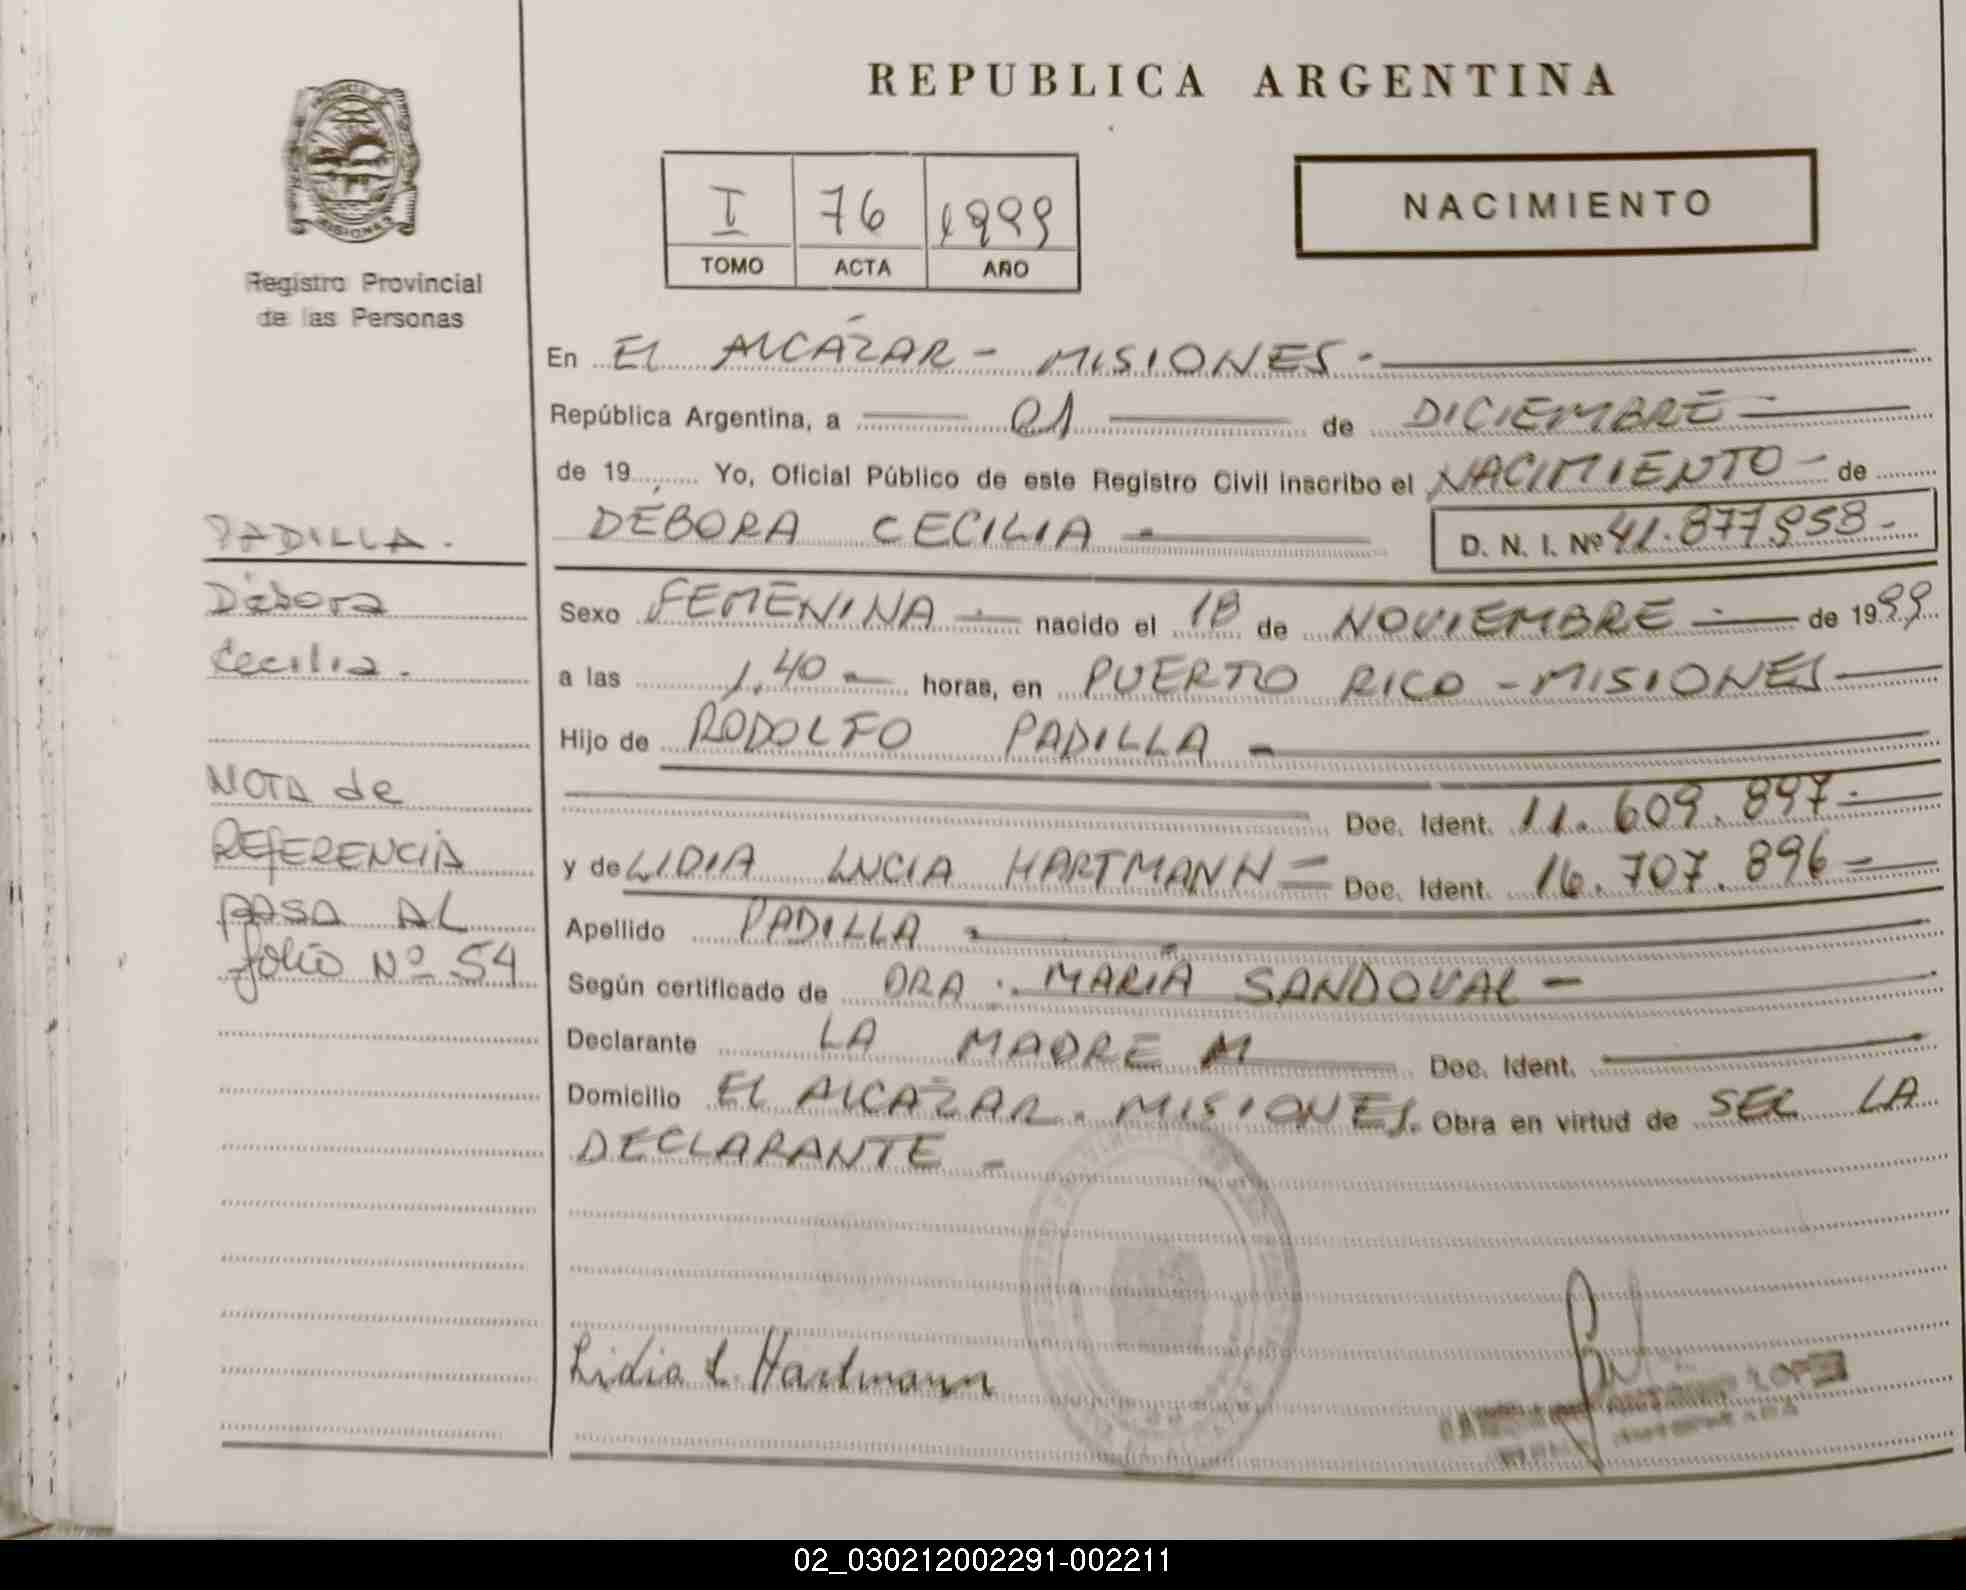 REPUBLICA ARGENTINA
NACIMIENTO
I 76 1999
TOMO ACTA AÑO
Registro Provincial
de las Personas
En EL ALCÁZAR - MISIONES -
República Argentina, a 01 de DICIEMBRE
de 19 Yo, Oficial Público de este Registro Civil inscribo el NACIMIENTO - de
DÉBORA CECILIA - D. N. I. Nº 41.877.958-
Sexo FEMENINA - nacido el 18 de NOVIEMBRE - de 1999
a las 1.40 - horas, en PUERTO RICO - MISIONES
Hijo de RODOLFO PADILLA -
Doc. Ident. 11.609.897-
y de LIDIA LUCIA HARTMANN = Doc. Ident. 16.707.896-
Apellido PADILLA -
Según certificado de DRA. MARÍA SANDOVAL -
Declarante LA MADRE Doc. Ident.
Domicilio EL ALCAZAR - MISIONES. Obra en virtud de SER LA
DECLARANTE -
PADILLA.
Débora
Cecilia.
NOTA de
REFERENCIA
PASA AL
folio Nº 54
Lidia L. Hartmann
ANTONIO LOPEZ
02_030212002291-002211